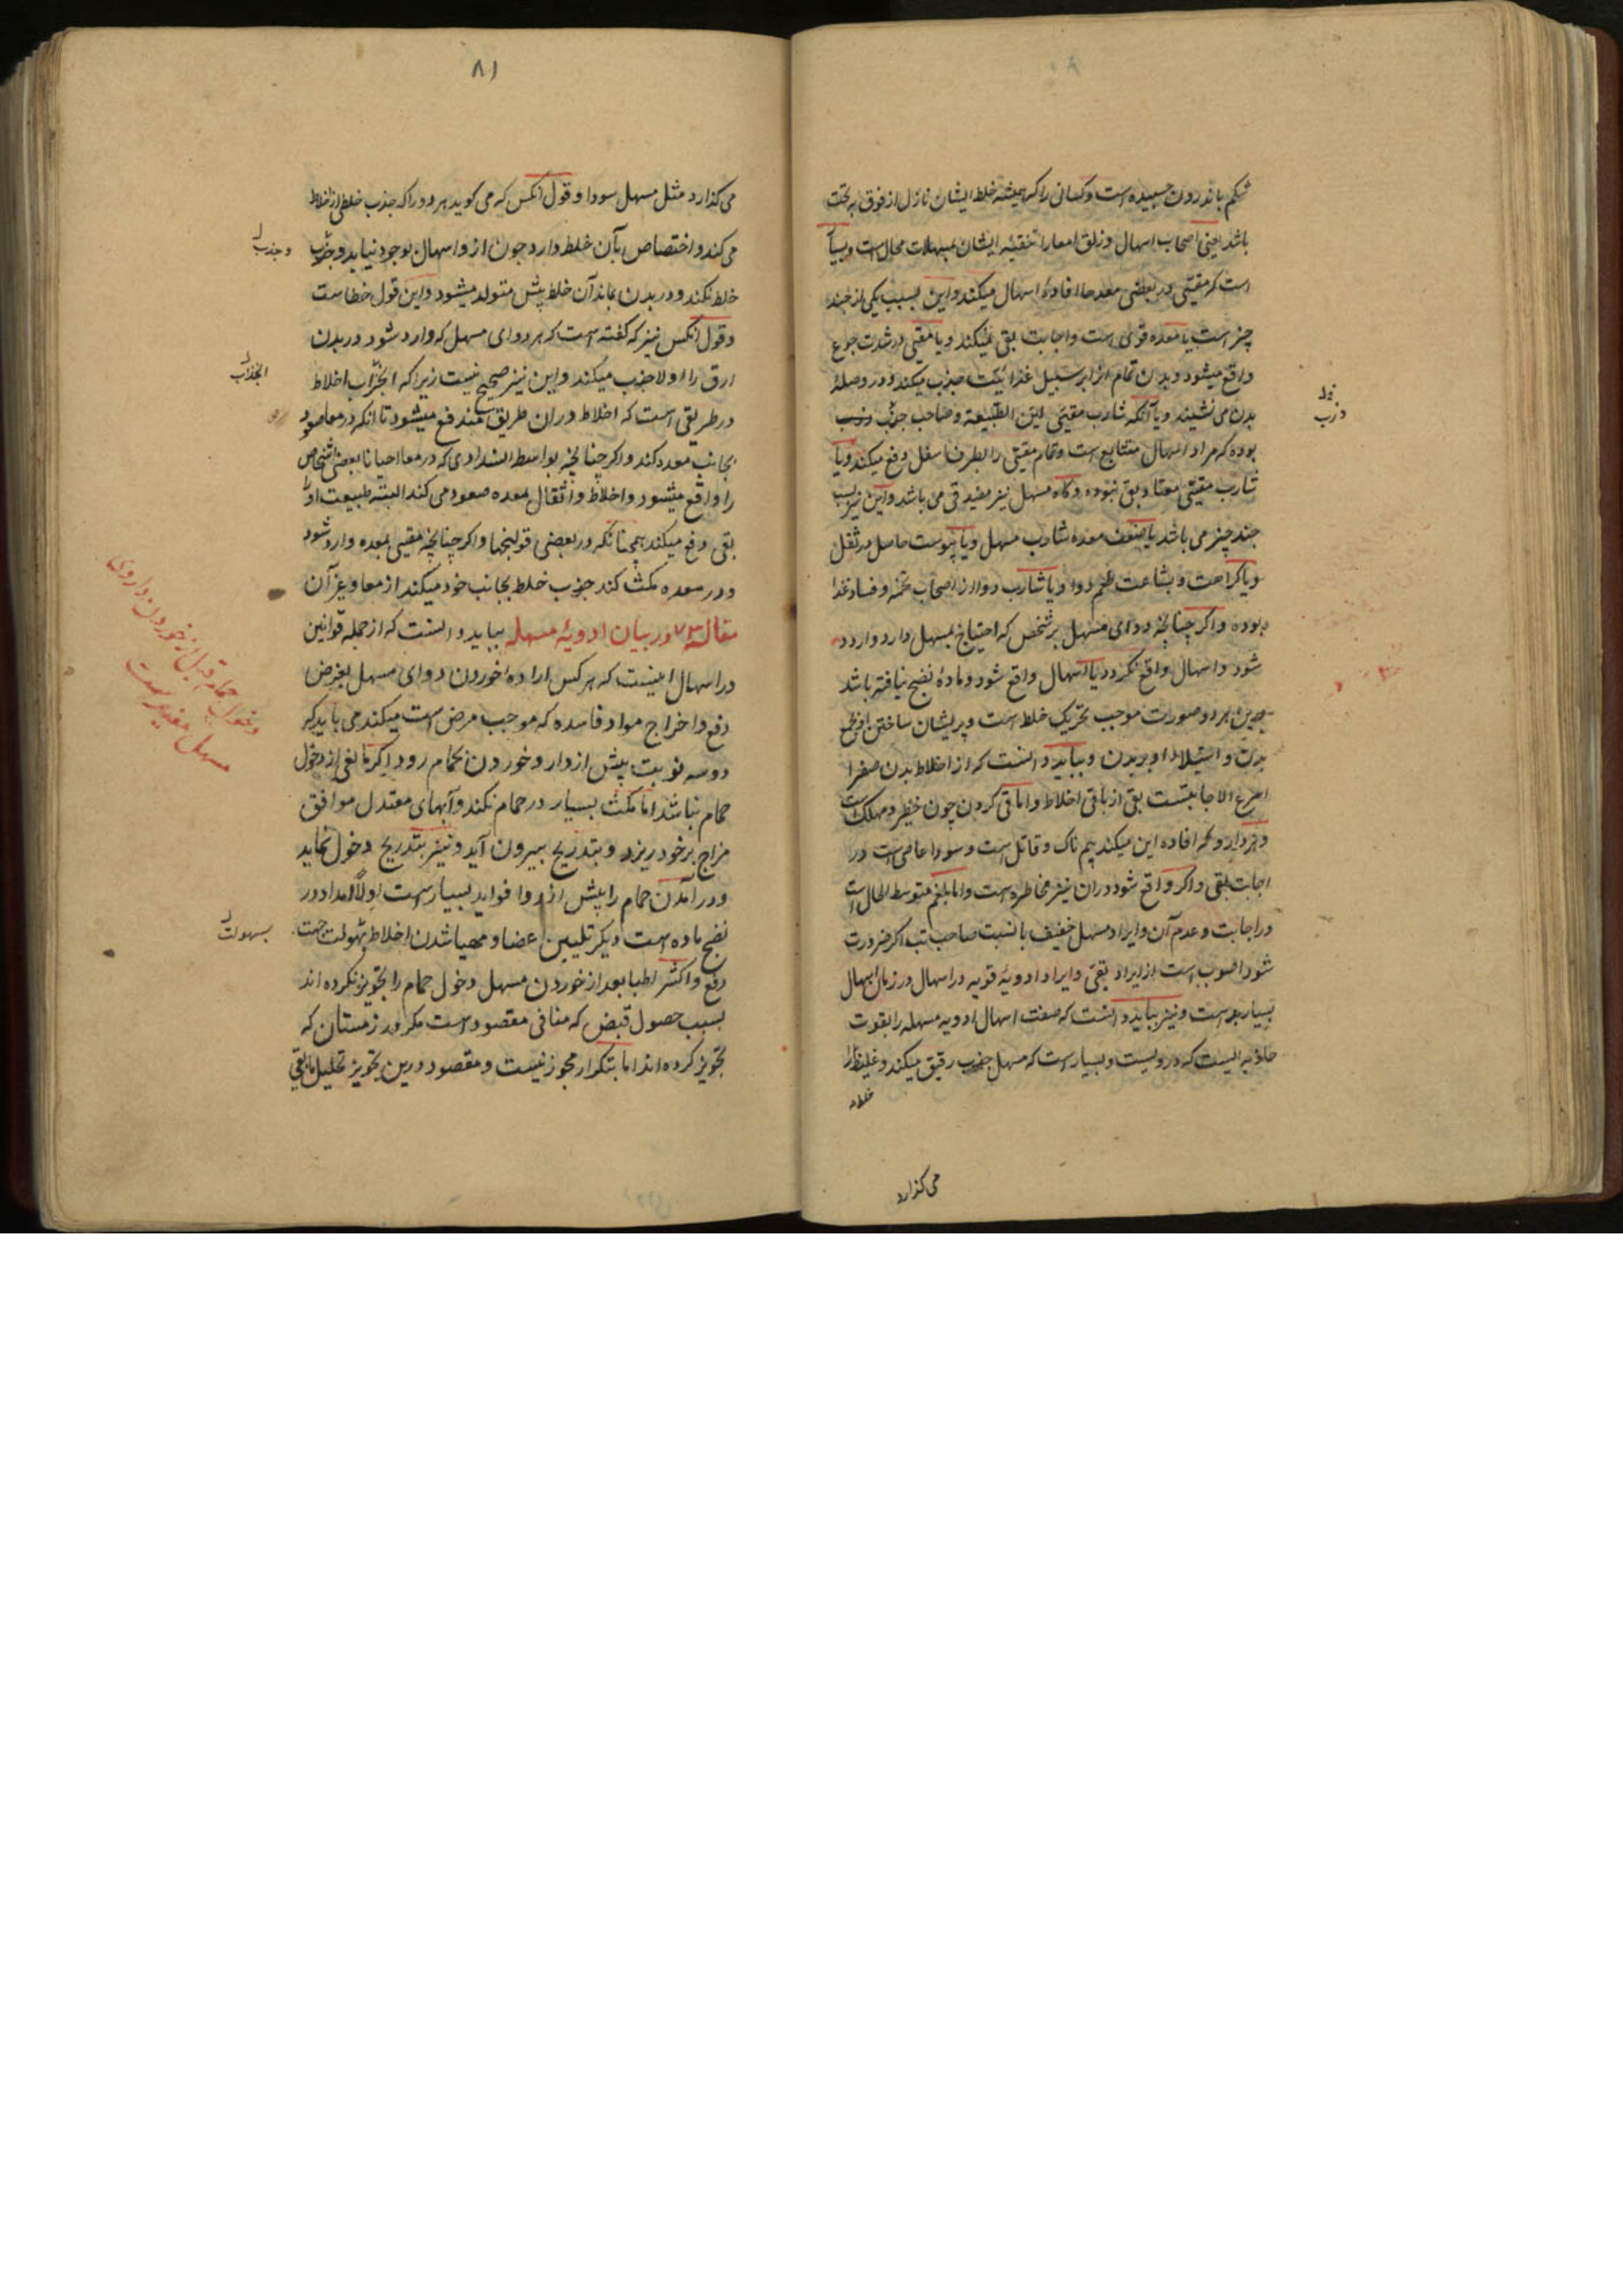 شکم باندرون چسبیده است و کسانی را که همیشه خلط ایشان نازل از فوق به تحت
باشد یعنی اصحاب اسهال و زلق امعا را تنقیه ایشان بمسهلات محال است و بسیار
است که مقیئی در بعضی معدها افادهٔ اسهال میکند و این بسبب یکی از چند
چیز است یا معده قوی است و اجابت بقی نمیکند و یا مقیئی در شدت جوع
واقع میشود و بدن تمام انرا بر سبیل غذائیت جذب میکند و در وصلهٔ
بدن می نشیند و یا آنکه شارب مقیئی لین الطبیعه و صاحب جزب و ذرب
بوده که مراد اسهال متتابع است و تمام مقیئی را بطرف اسفل دفع میکند و یا
شارب مقیئی معتاد بقی نبوده و کاه مسهل نیز مفید قی می باشد و این نیز بسبب
چند چیز می باشد یا ضعف معده شارب مسهل و یا یبوست حاصل در ثفل
و یا کراهت و بشاعت طعم دوا و یا شارب دوا از اصحاب تخمه و فساد غذا
بوده و اکر چنانچه دوای مسهل بر شخص که احتیاج بمسهل دارد وارد
شود و اسهال واقع نکردد یا اسهال واقع شود و مادهٔ نضج نیافته باشد
بدین هر دو صورت موجب تحریک خلط است و پریشان ساختن او فی جمیع
بدن و استیلاء او بر بدن و بباید دانست که از اخلاط بدن صفرا
اسرع الاجابتست بقی از باقی اخلاط و اما قی کردن چون خطر و مهلک است
و هر داروئی که افاده این میکند بیم ناک و قاتل است و سودا عاصی است در
اجابت بقی و اکر واقع شود در ان نیز مخاطره است و اما بلغم متوسط الحال است
در اجابت و عدم آن و ایراد مسهل خفیف با نسبت صاحب تب اکر ضرورت
شود اصوب است از ایراد بقی و ایراد ادویهٔ قویه در اسهال در زمان اسهال
بسیار بد است و نیز بباید دانست که صفت اسهال ادویه مسهله را بقوت
جاذبه ایست که دروست و بسیار است که مسهل جذب رقیق میکند و غلیظ را
خلط
می کذارد
و ذرب
۸۱
می کذارد مثل مسهل سودا و قول انکس که می کوید هر دوا را که جذب خلطی از اخلاط
می کند و اختصاص بآن خلط دارد چون از و اسهال بوجود نیاید و جزب
و جذب
خلط نکند و در بدن بماند آن خلط پیش متولد میشود و این قول خطاست
و قول انکس نیز که کفته است که هر دوای مسهل که وارد شود در بدن
ارق را اولا جذب میکند و این نیز صحیح نیست زیرا که انجذاب اخلاط
انجذاب
در طریقی است که اخلاط در ان طریق مندفع میشود تا انکه در معا صعود
بجانب معده کند و اکر چنانچه بواسطه انسدادی که در معا احیانا بعضی اشخاص
را واقع میشود و اخلاط و اثقال بمعده صعود می کند البته طبیعت او را
بقی دفع میکند همچنانکه در بعضی قولنجها و اکر چنانچه مقیئی بمعده وارد شود
و در معده مکث کند جذب خلط بجانب خود میکند از معا و غیر آن
مقاله ۷۳ در بیان ادویهٔ مسهله بباید دانست که از جمله قوانین
در اسهال اینست که هر کس ارادهٔ خوردن دوای مسهل بغرض
دفع و اخراج مواد فاسده که موجب مرض است میکند می باید که
دو سه نوبت پیش از دارو خوردن بحمام رود اکر مانعی از دخول
حمام نباشد اما مکث بسیار در حمام نکند و آبهای معتدل موافق
مزاج بر خود ریزد و بتدریج بیرون آید و نیز بتدریج دخول نماید
و در آمدن حمام را پیش از دوا فواید بسیار است اولا امداد در
نضج ماده است دیکر تلیین اعضا و مهیا شدن اخلاط بسهولت جهت
بسهولت
دفع و اکثر اطبا بعد از خوردن مسهل دخول حمام را تجویز نکرده اند
بسبب حصول قبض که منافی مقصود است مکر در زمستان که
تجویز کرده اند اما بتکرار مجوز نیست و مقصود درین تجویز تحلیل مابقی
دخول حمام قبل از خوردن داروی
مسهل مفید است